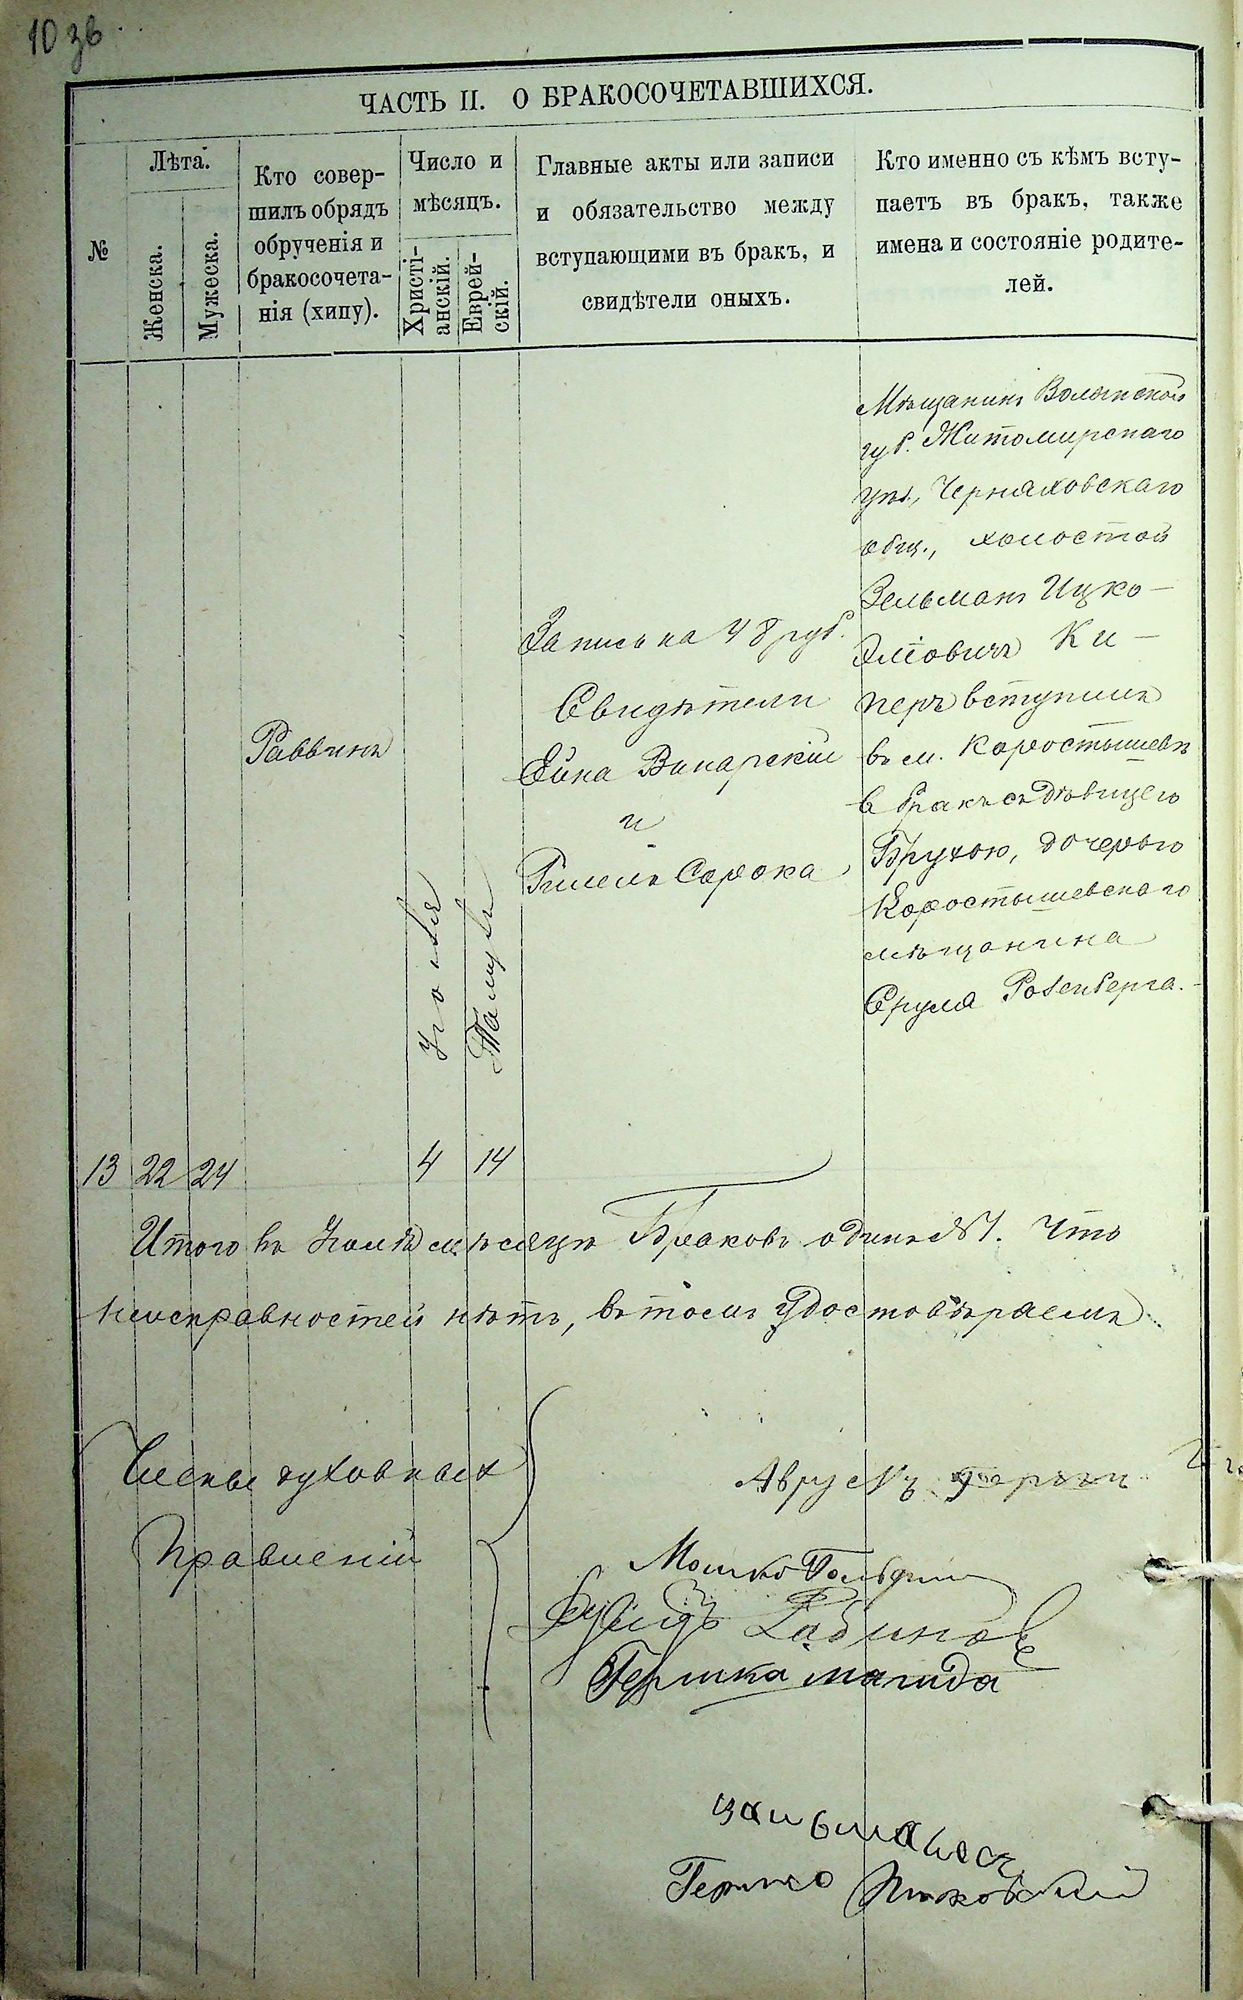 10 зв
ЧАСТЬ II. О БРАКОСОЧЕТАВШИХСЯ.
№
Лѣта.
Женска.
Мужеска.
Кто совер-
шилъ обрядъ
обрученія и
бракосочета-
нія (хипу).
Число и
мѣсяцъ.
Христі-
анскій.
Еврей-
скій.
Главные акты или записи
и обязательство между
вступающими въ бракъ, и
свидѣтели оныхъ.
Кто именно съ кѣмъ всту-
паетъ въ бракъ, также
имена и состояніе родите-
лей.
13
22
24
Раввинъ
Іюля
4
14
Запись на 48 руб.
Свидѣтели
Ейна Винарскій
и
Сорока
Мѣщанинъ Волынской
губ. Житомирскаго
уѣз., Черняховскаго
общ., холостой
Зельманъ Ицко-
Эліовичъ Ки-
перъ вступилъ
въ м. Коростышевѣ
въ бракъ съ дѣвицею
Брухою, дочерью
Коростышевскаго
мѣщанина
Сруля Розенберга.
Итого въ Іюлѣ мѣсяцѣ Браковъ одинъ №1. Что
неисправностей нѣтъ, въ томъ удостовѣряемъ
Члены духовныхъ
Правленій
Мошко
Рабинов
Гершка магида
Гершко